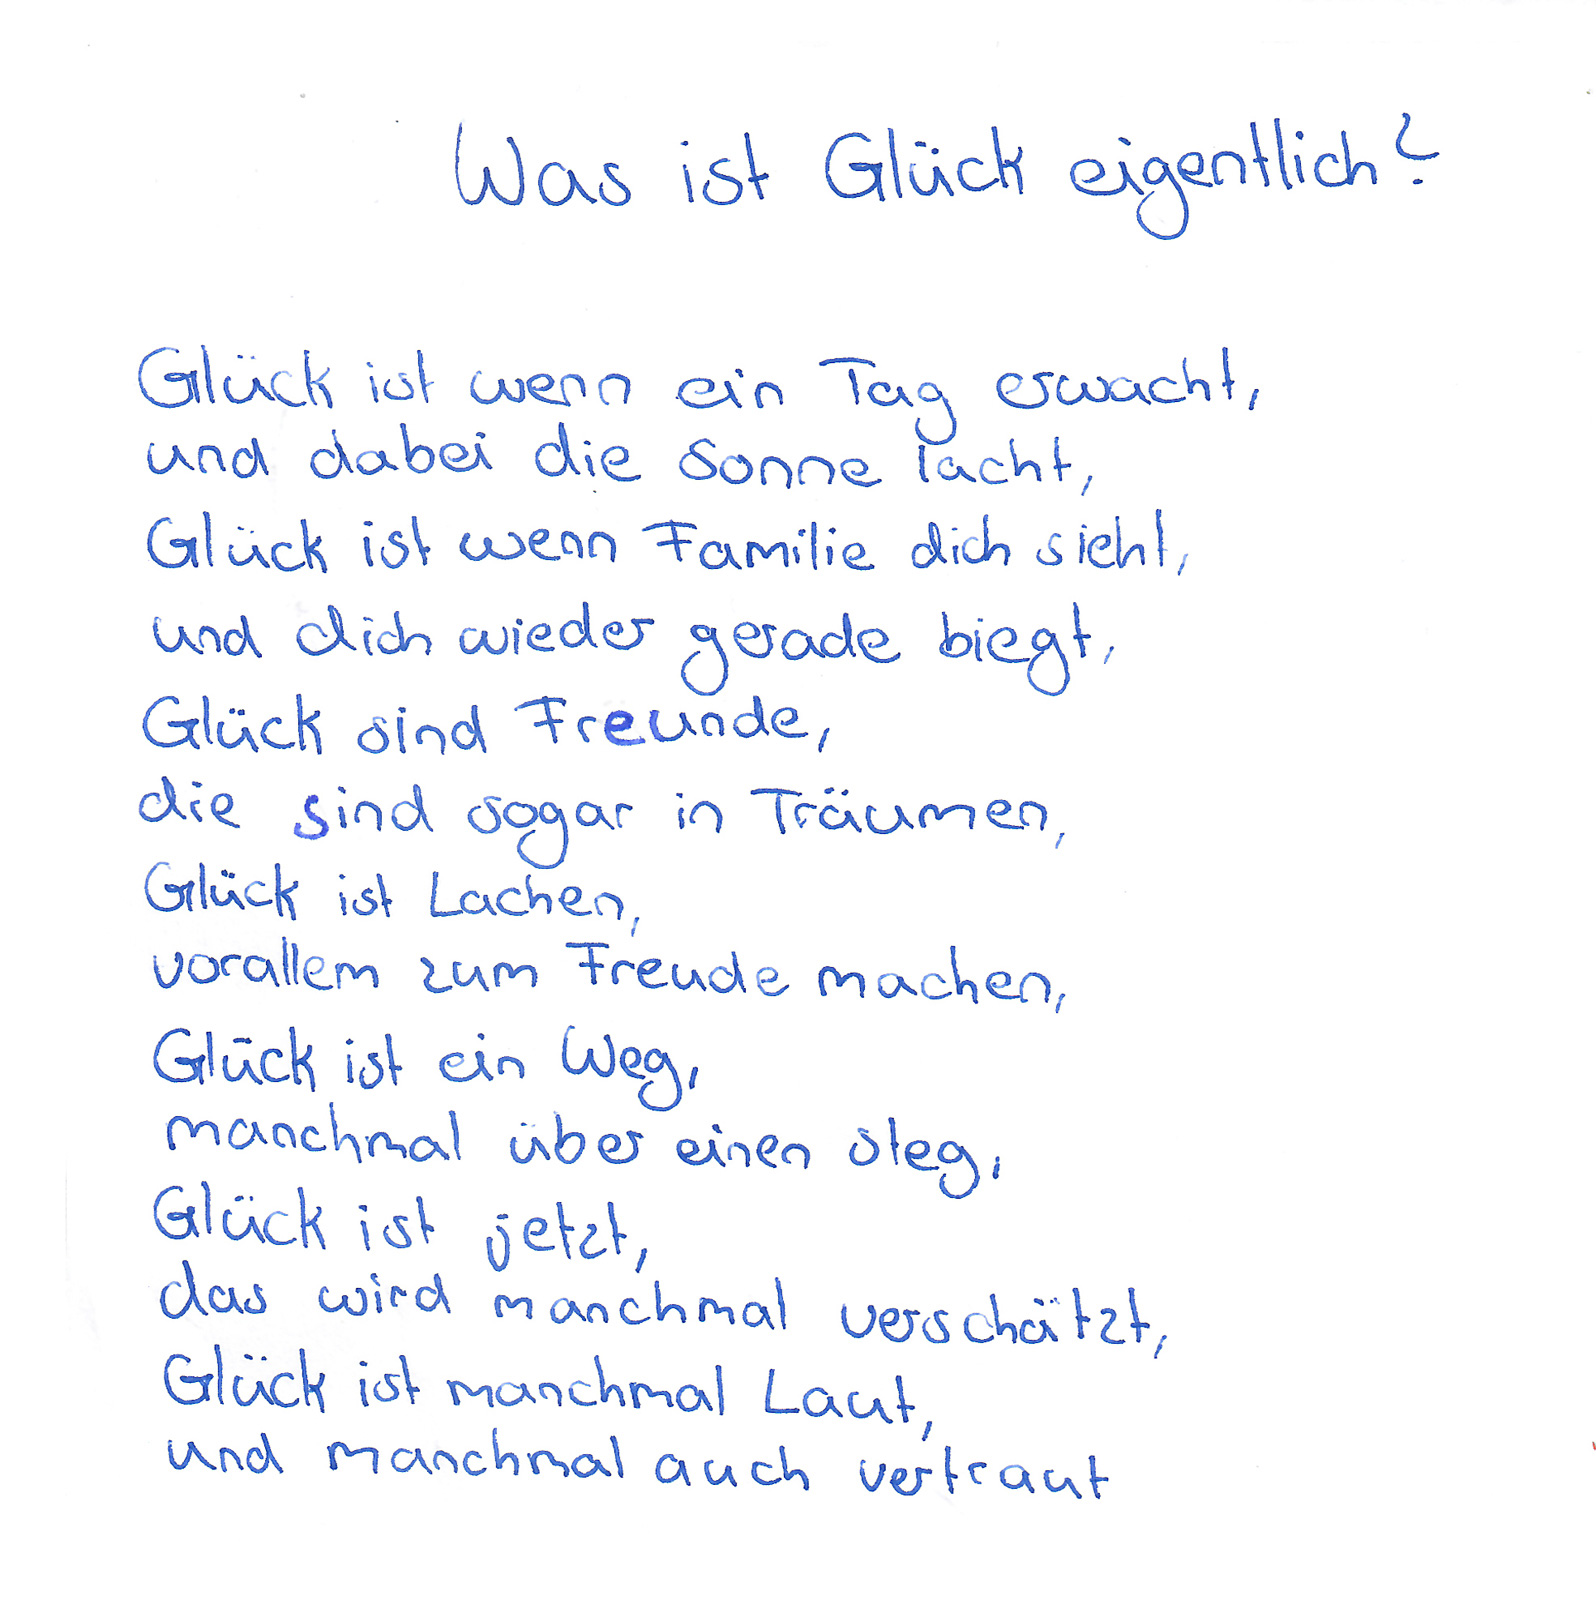 Was ist Glück eigentlich?
Glück ist wenn ein Tag erwacht,
und dabei die Sonne lacht,
Glück ist wenn Familie dich sieht,
und dich wieder gerade biegt,
Glück sind Freunde,
die sind sogar in Träumen,
Glück ist Lachen,
vorallem zum Freude machen,
Glück ist ein Weg,
manchmal über einen Steg,
Glück ist jetzt,
das wird manchmal verschätzt,
Glück ist manchmal Laut,
und manchmal auch vertraut